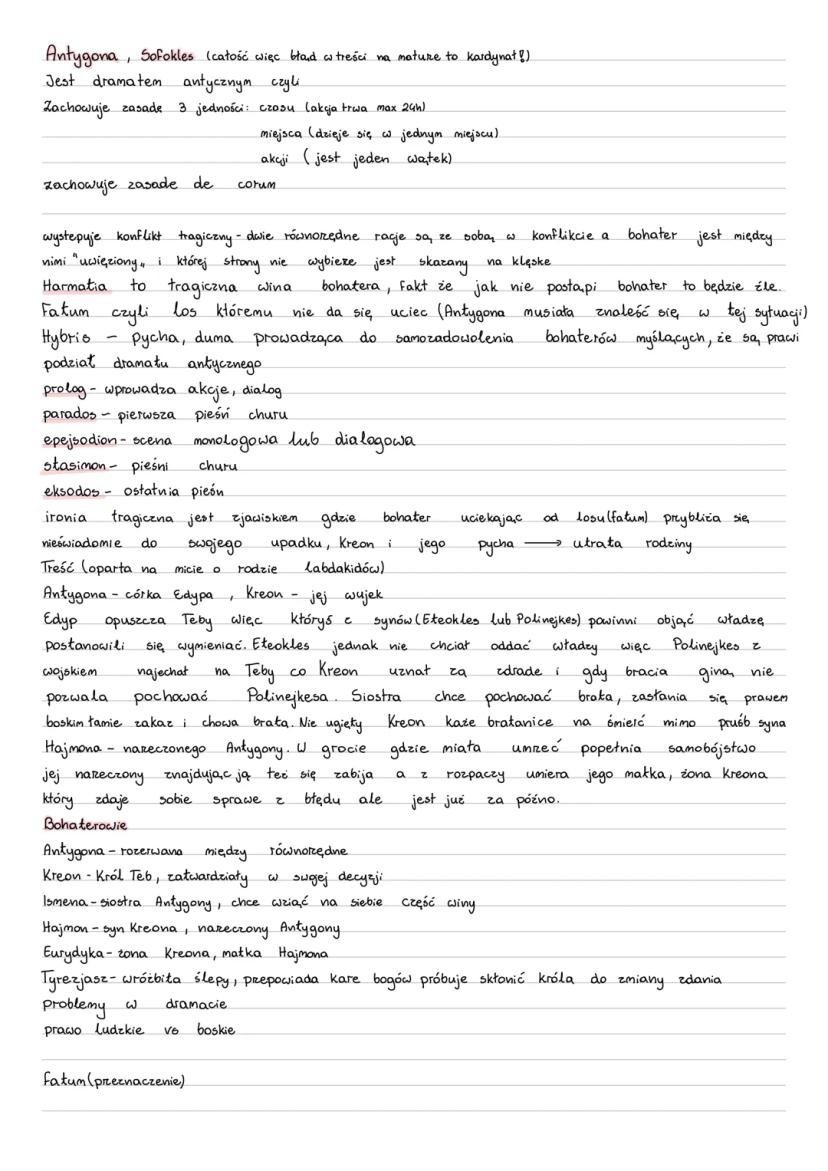 Antygona, Sofokles (całość więc bład w treści na mature to kardynał!)
Jest dramatem antycznym czyli
Zachowuje zasadę 3 jedności: czasu (akcja trwa max 24h)
miejsca (dzieje się w jednym miejscu)
akcji (jest jeden wątek)
zachowuje zasade de corum
występuje konflikt tragiczny - dwie równorzędne racje są ze sobą w konflikcie a bohater jest między
nimi "uwięziony" i której strony nie wybierze jest skazany na klęske
Harmatia to tragiczna wina bohatera, fakt że jak nie postąpi bohater to będzie źle.
Fatum czyli los któremu nie da się uciec (Antygona musiała znaleść się w tej sytuacji)
Hybris - pycha, duma prowadząca do samozadowolenia bohaterów myślących, że są prawi
podział dramatu antycznego
prolog - wprowadza akcje, dialog
parados - pierwsza pieśń churu
epejsodion - scena monologowa lub dialogowa
stasimon - pieśni churu
eksodos - ostatnia pieśń
ironia tragiczna jest zjawiskiem gdzie bohater uciekając od losu (fatum) przybliża się
nieświadomie do swojego upadku, Kreon i jego pycha → utrata rodziny
Treść (oparta na micie o rodzie labdakidów)
Antygona - córka Edypa, Kreon - jej wujek
Edyp opuszcza Teby więc któryś z synów (Eteokles lub Polinejkes) powinni objąć władzę
postanowili się wymieniać. Eteokles jednak nie chciał oddać władzy więc Polinejkes z
wojskiem najechał na Teby co Kreon uznał za zdrade i gdy bracia giną nie
pozwala pochować Polinejkesa. Siostra chce pochować brata, zasłania się prawem
boskim łamie zakaz i chowa brata. Nie ugięty Kreon każe bratanice na śmierć mimo pruśb syna
Hajmona - narzeczonego Antygony. W grocie gdzie miała umrzeć popełnia samobójstwo
jej narzeczony znajdując ją też się zabija a z rozpaczy umiera jego matka, żona Kreona
który zdaje sobie sprawe z błędu ale jest już za późno.
Bohaterowie
Antygona - rozerwana między równorzędne
Kreon - Król Teb, zatwardziały w swojej decyzji
Ismena - siostra Antygony, chce wziąć na siebie część winy
Hajmon - syn Kreona, narzeczony Antygony
Eurydyka - żona Kreona, matka Hajmona
Tyrezjasz - wróżbita ślepy, przepowiada kare bogów próbuje skłonić króla do zmiany zdania
problemy w dramacie
prawo ludzkie vs boskie
fatum (przeznaczenie)